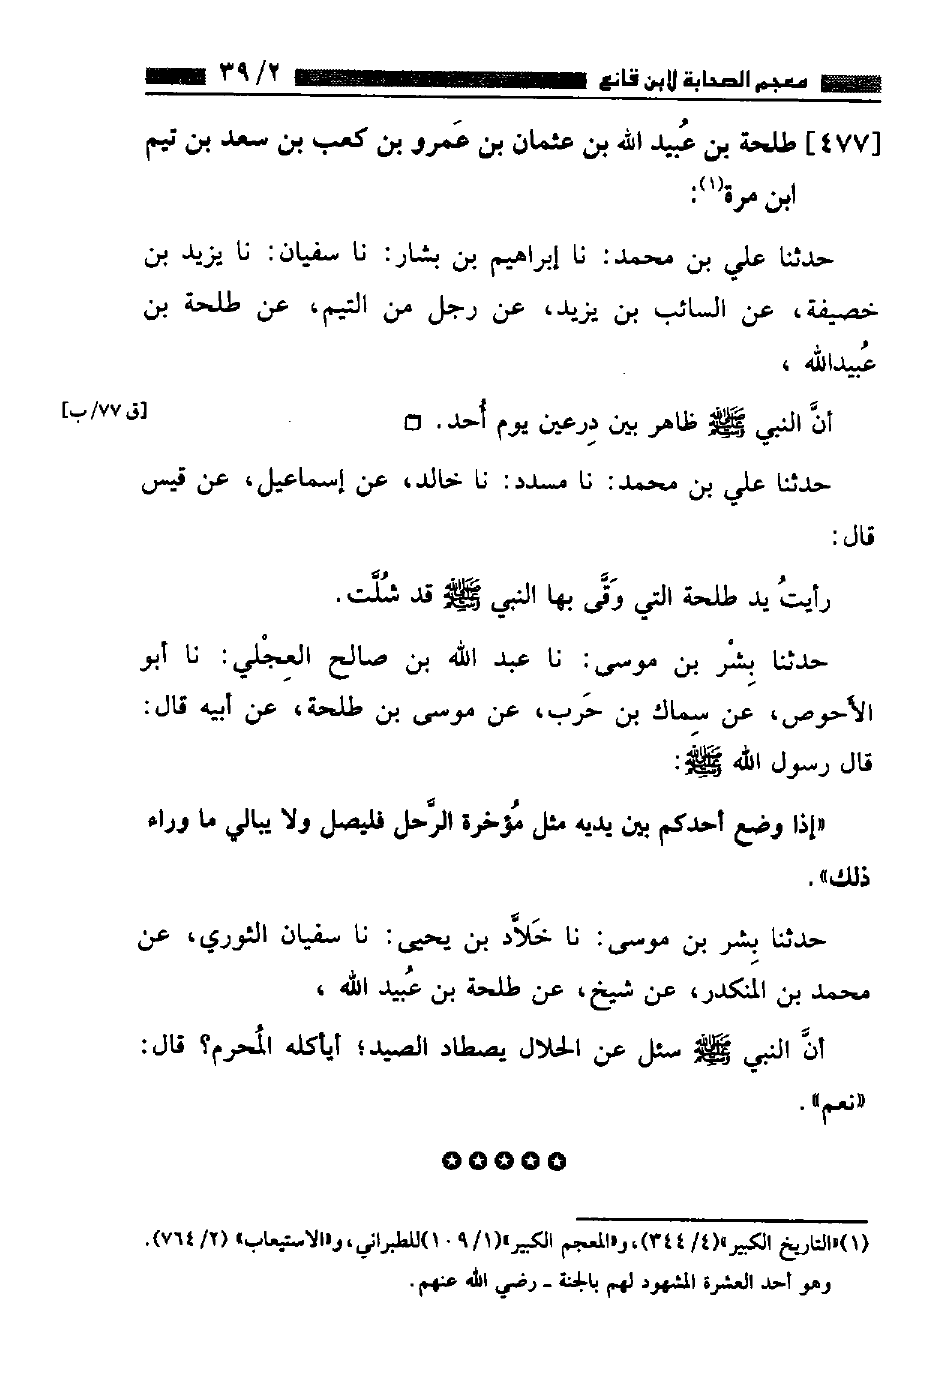 معجم الصحابة لابن قانع ٢/ ٣٩
[٤٧٧] طلحة بن عُبيد الله بن عثمان بن عَمرو بن كعب بن سعد بن تيم
ابن مرة(١):
حدثنا علي بن محمد: نا إبراهيم بن بشار: نا سفيان: نا يزيد بن
خصيفة، عن السائب بن يزيد، عن رجل من التيم، عن طلحة بن
عُبيدالله ،
أنَّ النبي ﷺ ظاهر بين دِرعين يوم أُحد. □
[ق ٧٧/ ب]
حدثنا علي بن محمد: نا مسدد: نا خالد، عن إسماعيل، عن قيس
قال:
رأيتُ يد طلحة التي وَقَّى بها النبي ﷺ قد شُلَّت.
حدثنا بِشْر بن موسى: نا عبد الله بن صالح العِجْلي: نا أبو
الأحوص، عن سِماك بن حَرب، عن موسى بن طلحة، عن أبيه قال:
قال رسول الله ﷺ:
«إذا وضع أحدكم بين يديه مثل مُؤخرة الرَّحل فليصل ولا يبالي ما وراء
ذلك».
حدثنا بِشر بن موسى: نا خَلاَّد بن يحيى: نا سفيان الثوري، عن
محمد بن المنكدر، عن شيخ، عن طلحة بن عُبيد الله ،
أنَّ النبي ﷺ سئل عن الحلال يصطاد الصيد؛ أيأكله المُحرم؟ قال:
«نعم».
✪✪✪✪✪
(١) «التاريخ الكبير»(٤/ ٣٤٤)، و«المعجم الكبير»(١/ ١٠٩)للطبراني، و«الاستيعاب» (٢/ ٧٦٤).
وهو أحد العشرة المشهود لهم بالجنة ـ رضي الله عنهم.